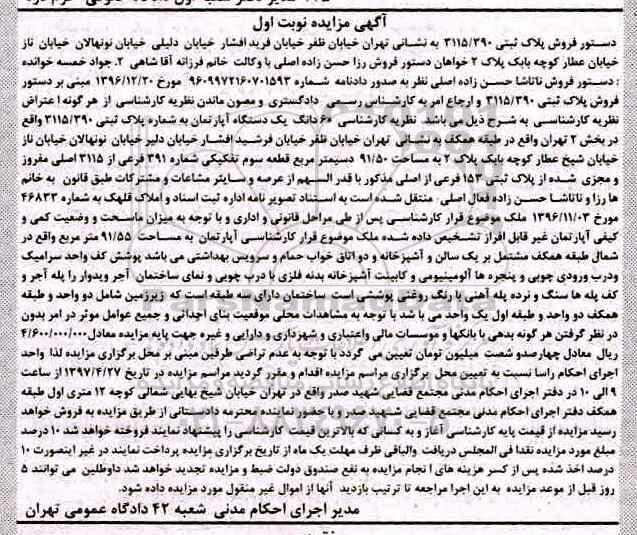 آگهی مزایده نوبت اول
دستور فروش پلاک ثبتی ۳۱۱۵/۳۹۰ به نشانی تهران خیابان ظفر خیابان فرید افشار خیابان دلیلی خیابان نونهالان خیابان ناز
خیابان عطار کوچه بابک پلاک ۲ خواهان دستور فروش رزا حسن زاده اصلی با وکالت خانم فرزانه آقا شاهی ۲.جواد خمسه خوانده
: دستور فروش ناتاشا حسن زاده اصلی نظر به صدور دادنامه شماره ۹۶۰۹۹۷۲۱۶۰۷۰۱۵۹۳ مورخ ۱۳۹۶/۱۲/۲۰ مبنی بر دستور
فروش پلاک ثبتی ۳۱۱۵/۳۹۰ و ارجاع امر به کارشناس رسمی دادگستری و مصون ماندن نظریه کارشناسی از هر گونه اعتراض
نظریه کارشناسی به شرح ذیل می باشد. نظریه کارشناسی «۶ دانگ یک دستگاه آپارتمان به شماره پلاک ثبتی ۳۱۱۵/۳۹۰ واقع
در بخش ۲ تهران واقع در طبقه همکف به نشانی تهران خیابان ظفر خیابان فرشید افشار خیابان دلیر خیابان نونهالان خیابان ناز
خیابان شیخ عطار کوچه بابک پلاک ۲ به مساحت ۹۱/۵۰ دسیمتر مربع قطعه سوم تفکیکی شماره ۳۹۱ فرعی از ۳۱۱۵ اصلی مفروز
و مجزی شده از پلاک ثبتی ۱۵۳ فرعی از اصلی مذکور با قدر السهم از عرصه و سایر مشاعات و مشترکات طبق قانون به خانم
ها رزا و ناتاشا حسن زاده فعال اصلی، منتقل شده است به استناد تصویر نامه اداره ثبت اسناد و املاک قلهک به شماره ۴۶۸۳۳
مورخ ۱۳۹۶/۱۱/۰۳ ملک موضوع قرار کارشناسی پس از طی مراحل قانونی و اداری و با توجه به میزان مساحت و وضعیت کمی و
کیفی آپارتمان غیر قابل افراز تشخیص داده شده ملک موضوع قرار کارشناسی آپارتمان به مساحت ۹۱/۵۵ متر مربع واقع در
شمال طبقه همکف مشتمل بر یک سالن و آشپزخانه و دو اتاق خواب حمام و سرویس بهداشتی می باشد پوشش کف واحد سرامیک
ودرب ورودی چوبی و پنجره ها آلومینیومی و کابینت آشپزخانه بدنه فلزی با درب چوبی و نمای ساختمان آجر ویدوار را پله آجر و
کف پله ها سنگ و نرده پله آهنی با رنگ روغنی پوششی است. ساختمان دارای سه طبقه است که زیرزمین شامل دو واحد و طبقه
همکف دو واحد و طبقه اول یک واحد می با شد با توجه به مشاهدات محلی موقعیت بنای احداثی و جمیع عوامل موثر در امر بدون
در نظر گرفتن هر گونه بدهی با بانکها و موسسات مالی واعتباری و شهرداری و دارایی و غیره جهت پایه مزایده معادل ۴/۶۰۰/۰۰۰/۰۰۰
ریال معادل چهارصدو شصت میلیون تومان تعیین می گردد با توجه به عدم تراضی طرفین مبنی بر محل برگزاری مزایده لذا واحد
اجرای احکام راسا نسبت به تعیین محل برگزاری مراسم مزایده اقدام و مقرر گردید مراسم مزایده در تاریخ ۱۳۹۷/۴/۲۷ از ساعت
۹ الی ۱۰ در دفتر اجرای احکام مدنی مجتمع قضایی شهید صدر واقع در تهران خیابان شیخ بهایی شمالی کوچه ۱۲ متری اول طبقه
همکف دفتر اجرای احکام مدنی مجتمع قضایی شهید صدر و با حضور نماینده محترمه دادستانی از طریق مزایده به فروش خواهد
رسید مزایده از قیمت پایه کارشناسی آغاز و به کسانی که بالاترین قیمت کارشناسی را پیشنهاد نمایند فروخته خواهد شد ۱۰ درصد
مبلغ مورد مزایده نقدا فی المجلس دریافت والباقی ظرف مهلت یک ماه از تاریخ برگزاری مزایده پرداخت نمایند در غیر اینصورت ۱۰
درصد اخذ شده پس از کسر هزینه های انجام مزایده به نفع صندوق دولت ضبط و مزایده تجدید خواهد شد داوطلبین می توانند ۵
روز قبل از موعد مزایده به این اجرا مراجعه تا ترتیب بازدید آنها از اموال غیر منقول مورد مزایده داده شود.
مدیر اجرای احکام مدنی شعبه ۴۲ دادگاه عمومی تهران